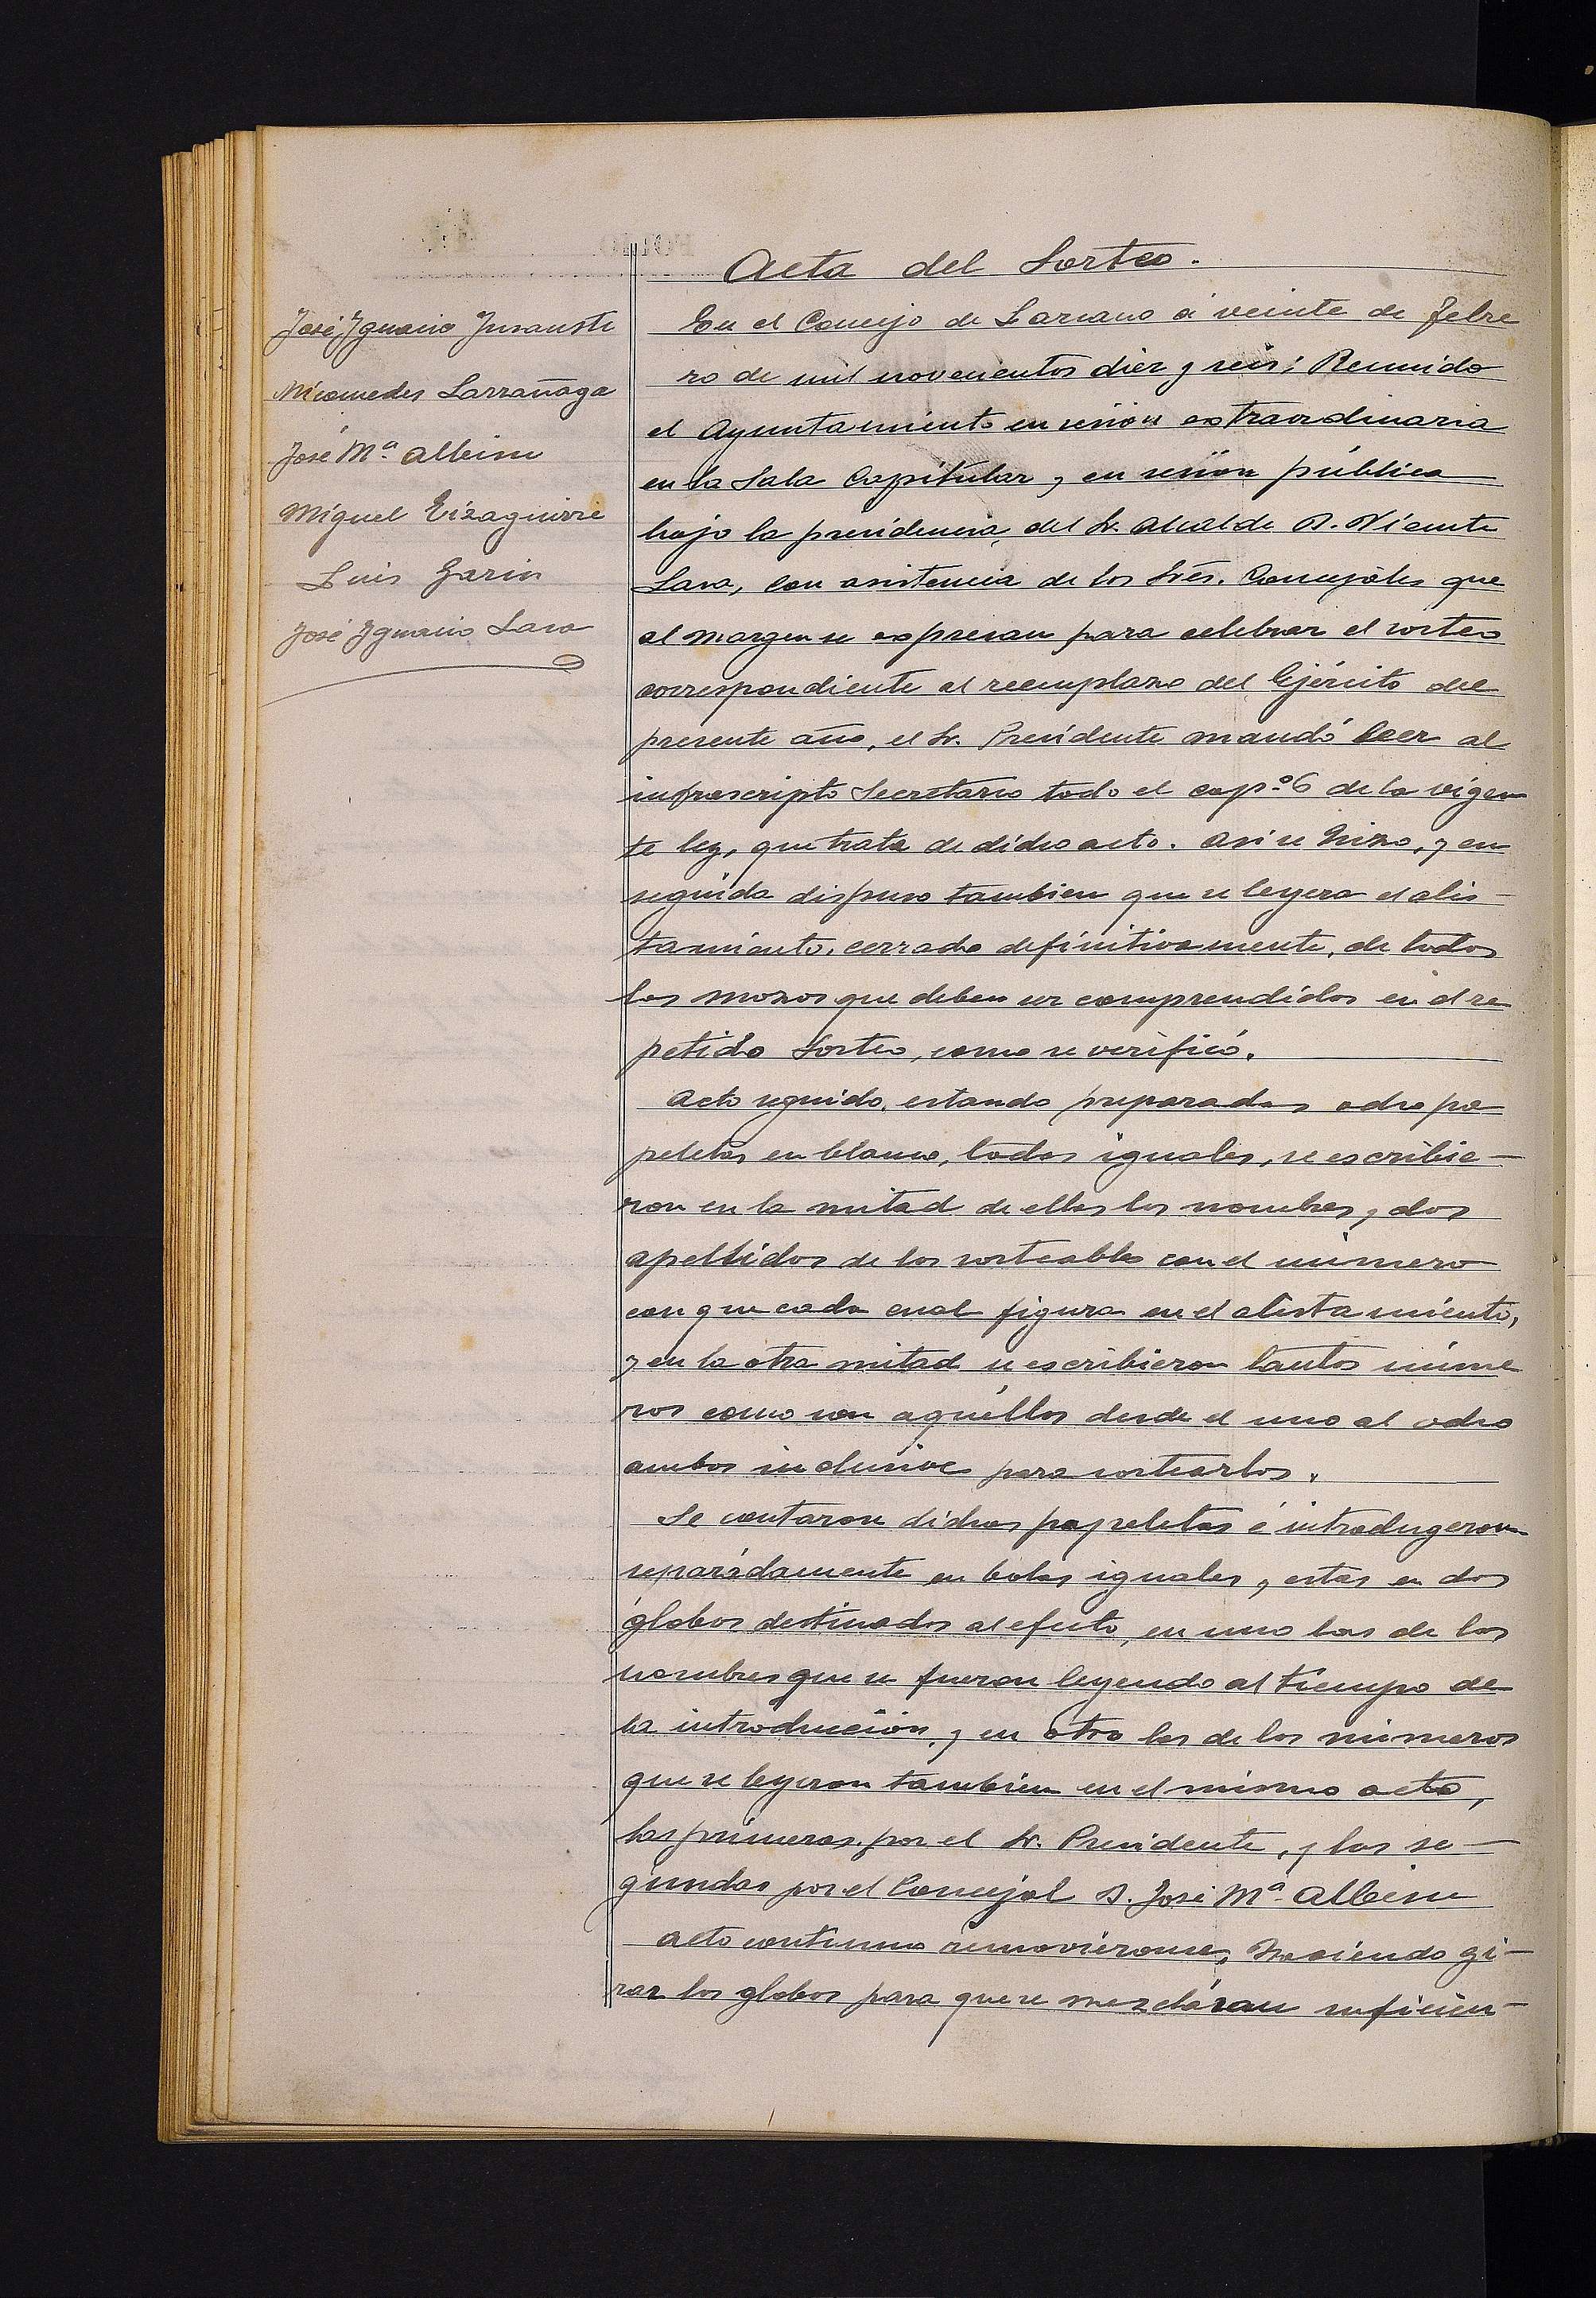 Acta del Sorteo.
José Ygnacio Insausti
Nicomedes Larrañaga
José Mª Albisu
Miguel Eizaguirre
Luis Garin
José Ygnacio Lasa
En el Concejo de Lazcano á veinte de Febre
ro de mil novecientos diez y seis; Reunido
el Ayuntamiento en sesión extraordinaria
en la Sala Capitular y en sesion pública
bajo la presidencia, del Sr. Alcalde D. Vicente
Lasa, con asistencia de los Srés. Concejales que
al margen se expresan para celebrar el sorteo
correspondiente al reemplazo del Ejército del
presente año, el Sr. Presidente mandó leer al
infrascripto Secretario todo el cap.º 6 de la vigen
te ley, que trata de dicho acto. Asi se hizo, y en
seguida dispuso tambien que se leyera el alis-
tamiento, cerrado definitivamente, de todos
los mozos que deben ser comprendidos en el re
petido Sorteo, como se verificó.
Acto seguido, estando preparadas ocho pa
peletas en blanco, todas iguales, se escribie-
ron en la mitad de ellas los nombres y dos
apellidos de los sorteables con el número
con que cada cual figura en el alistamiento,
y en la otra mitad se escribieron tantos núme
ros como son aquéllos desde el uno al ocho
ambos inclusive para sortearlos.
Se contaron dichas papeletas é introdugeron
separádamente en bolas iguales, y estas en dos
globos destinados al efecto, en uno las de los
nombres que se fueron leyendo al tiempo de
la introducción, y en otro las de los números
que se leyeron tambien en el mismo acto,
las primeras, por el Sr. Presidente, y las se-
gundas por el Concejal D. José Mª Albisu
Acto continuo removiéronse, haciendo gi-
rar los globos para que se mezcláran suficien-